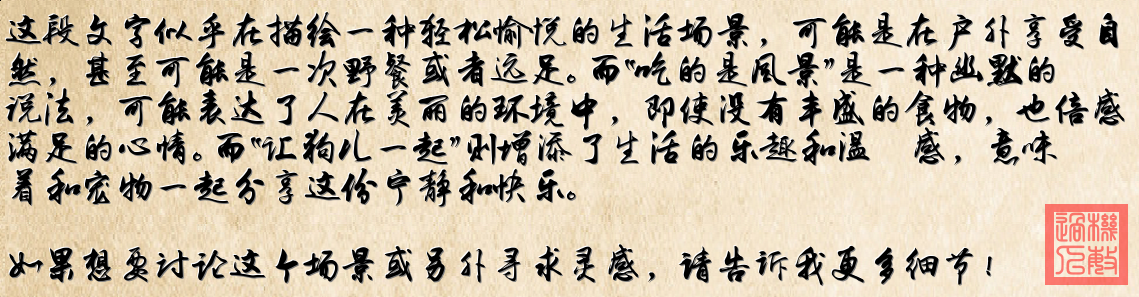 这段文字似乎在描绘一种轻松愉悦的生活场景，可能是在户外享受自
然，甚至可能是一次野餐或者远足。而“吃的是风景”是一种幽默的
说法，可能表达了人在美丽的环境中，即使没有丰盛的食物，也倍感
满足的心情。而“让狗儿一起”则增添了生活的乐趣和温 感，意味
着和宠物一起分享这份宁静和快乐。
如果想要讨论这个场景或另外寻求灵感，请告诉我更多细节！